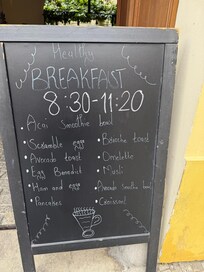 Healthy
BREAKFAST
8:30-11:20
Açai smoothie bowl
Scramble egg
Avocado toast
Egg Benedict
Ham and egg
Pancakes
Brioche toast
Omelette
Musli
Avocado smothi bowl
Croissant